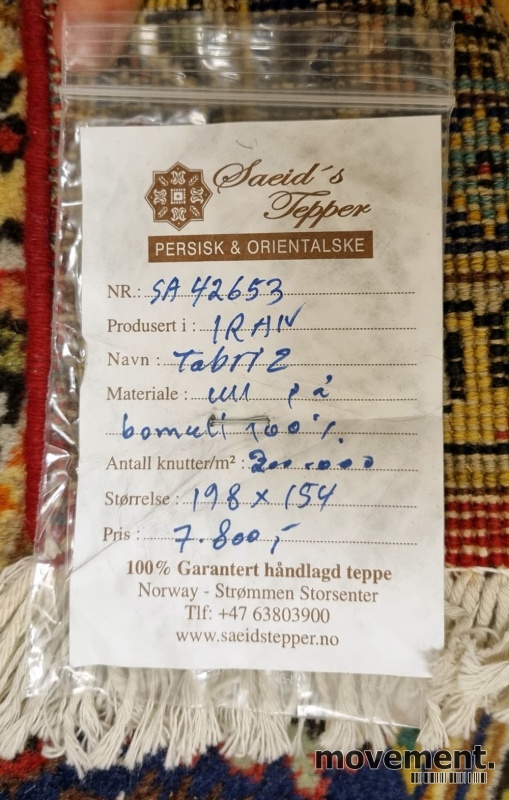 Saeid´s
Tepper
PERSISK & ORIENTALSKE
NR.: SA 42653
Produsert i : IRAN
Navn : Tabriz
Materiale : ull på
bomull 100%
Antall knutter/m² : 200.000
Størrelse : 198 x 154
Pris : 7.800,-
100% Garantert håndlagd teppe
Norway - Strømmen Storsenter
Tlf: +47 63803900
www.saeidstepper.no
movement.